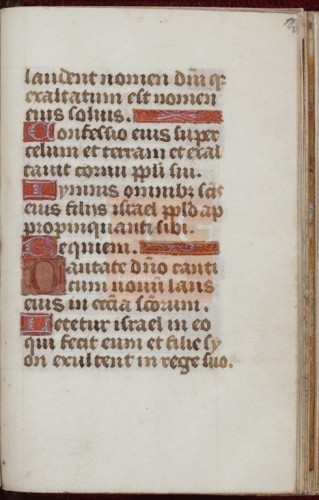 laudent nomen dñi q̄
exaltatum est nomen
eius solius.
Confessio eius super
celum et terram et exal
tauit cornu ppłi sui.
Hymnus omnibꝫ scīs
eius filijs israel ppło ap
propinquanti sibi.
Requiem.
Cantate dño canti
cum nouū laus
eius in ecc̄ia sc̄orum.
Letetur israel in eo
qui fecit eum et filie sy
on exultent in rege suo.